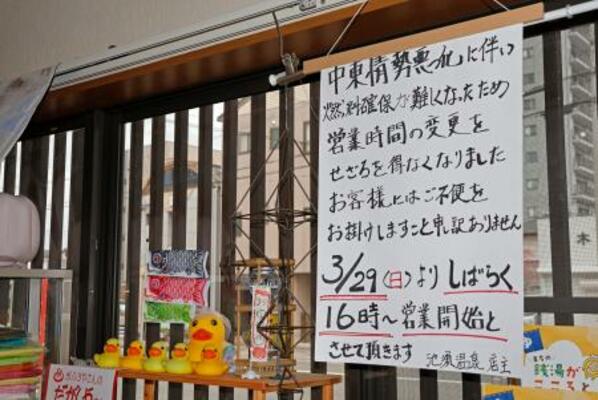 中東情勢悪化に伴い
燃料確保が難しくなったため
営業時間の変更を
せざるを得なくなりました
お客様にはご不便を
お掛けしますこと申し訳ありません
3/29(日)よりしばらく
16時〜営業開始と
させて頂きます
店主
木
銭湯が
こころと